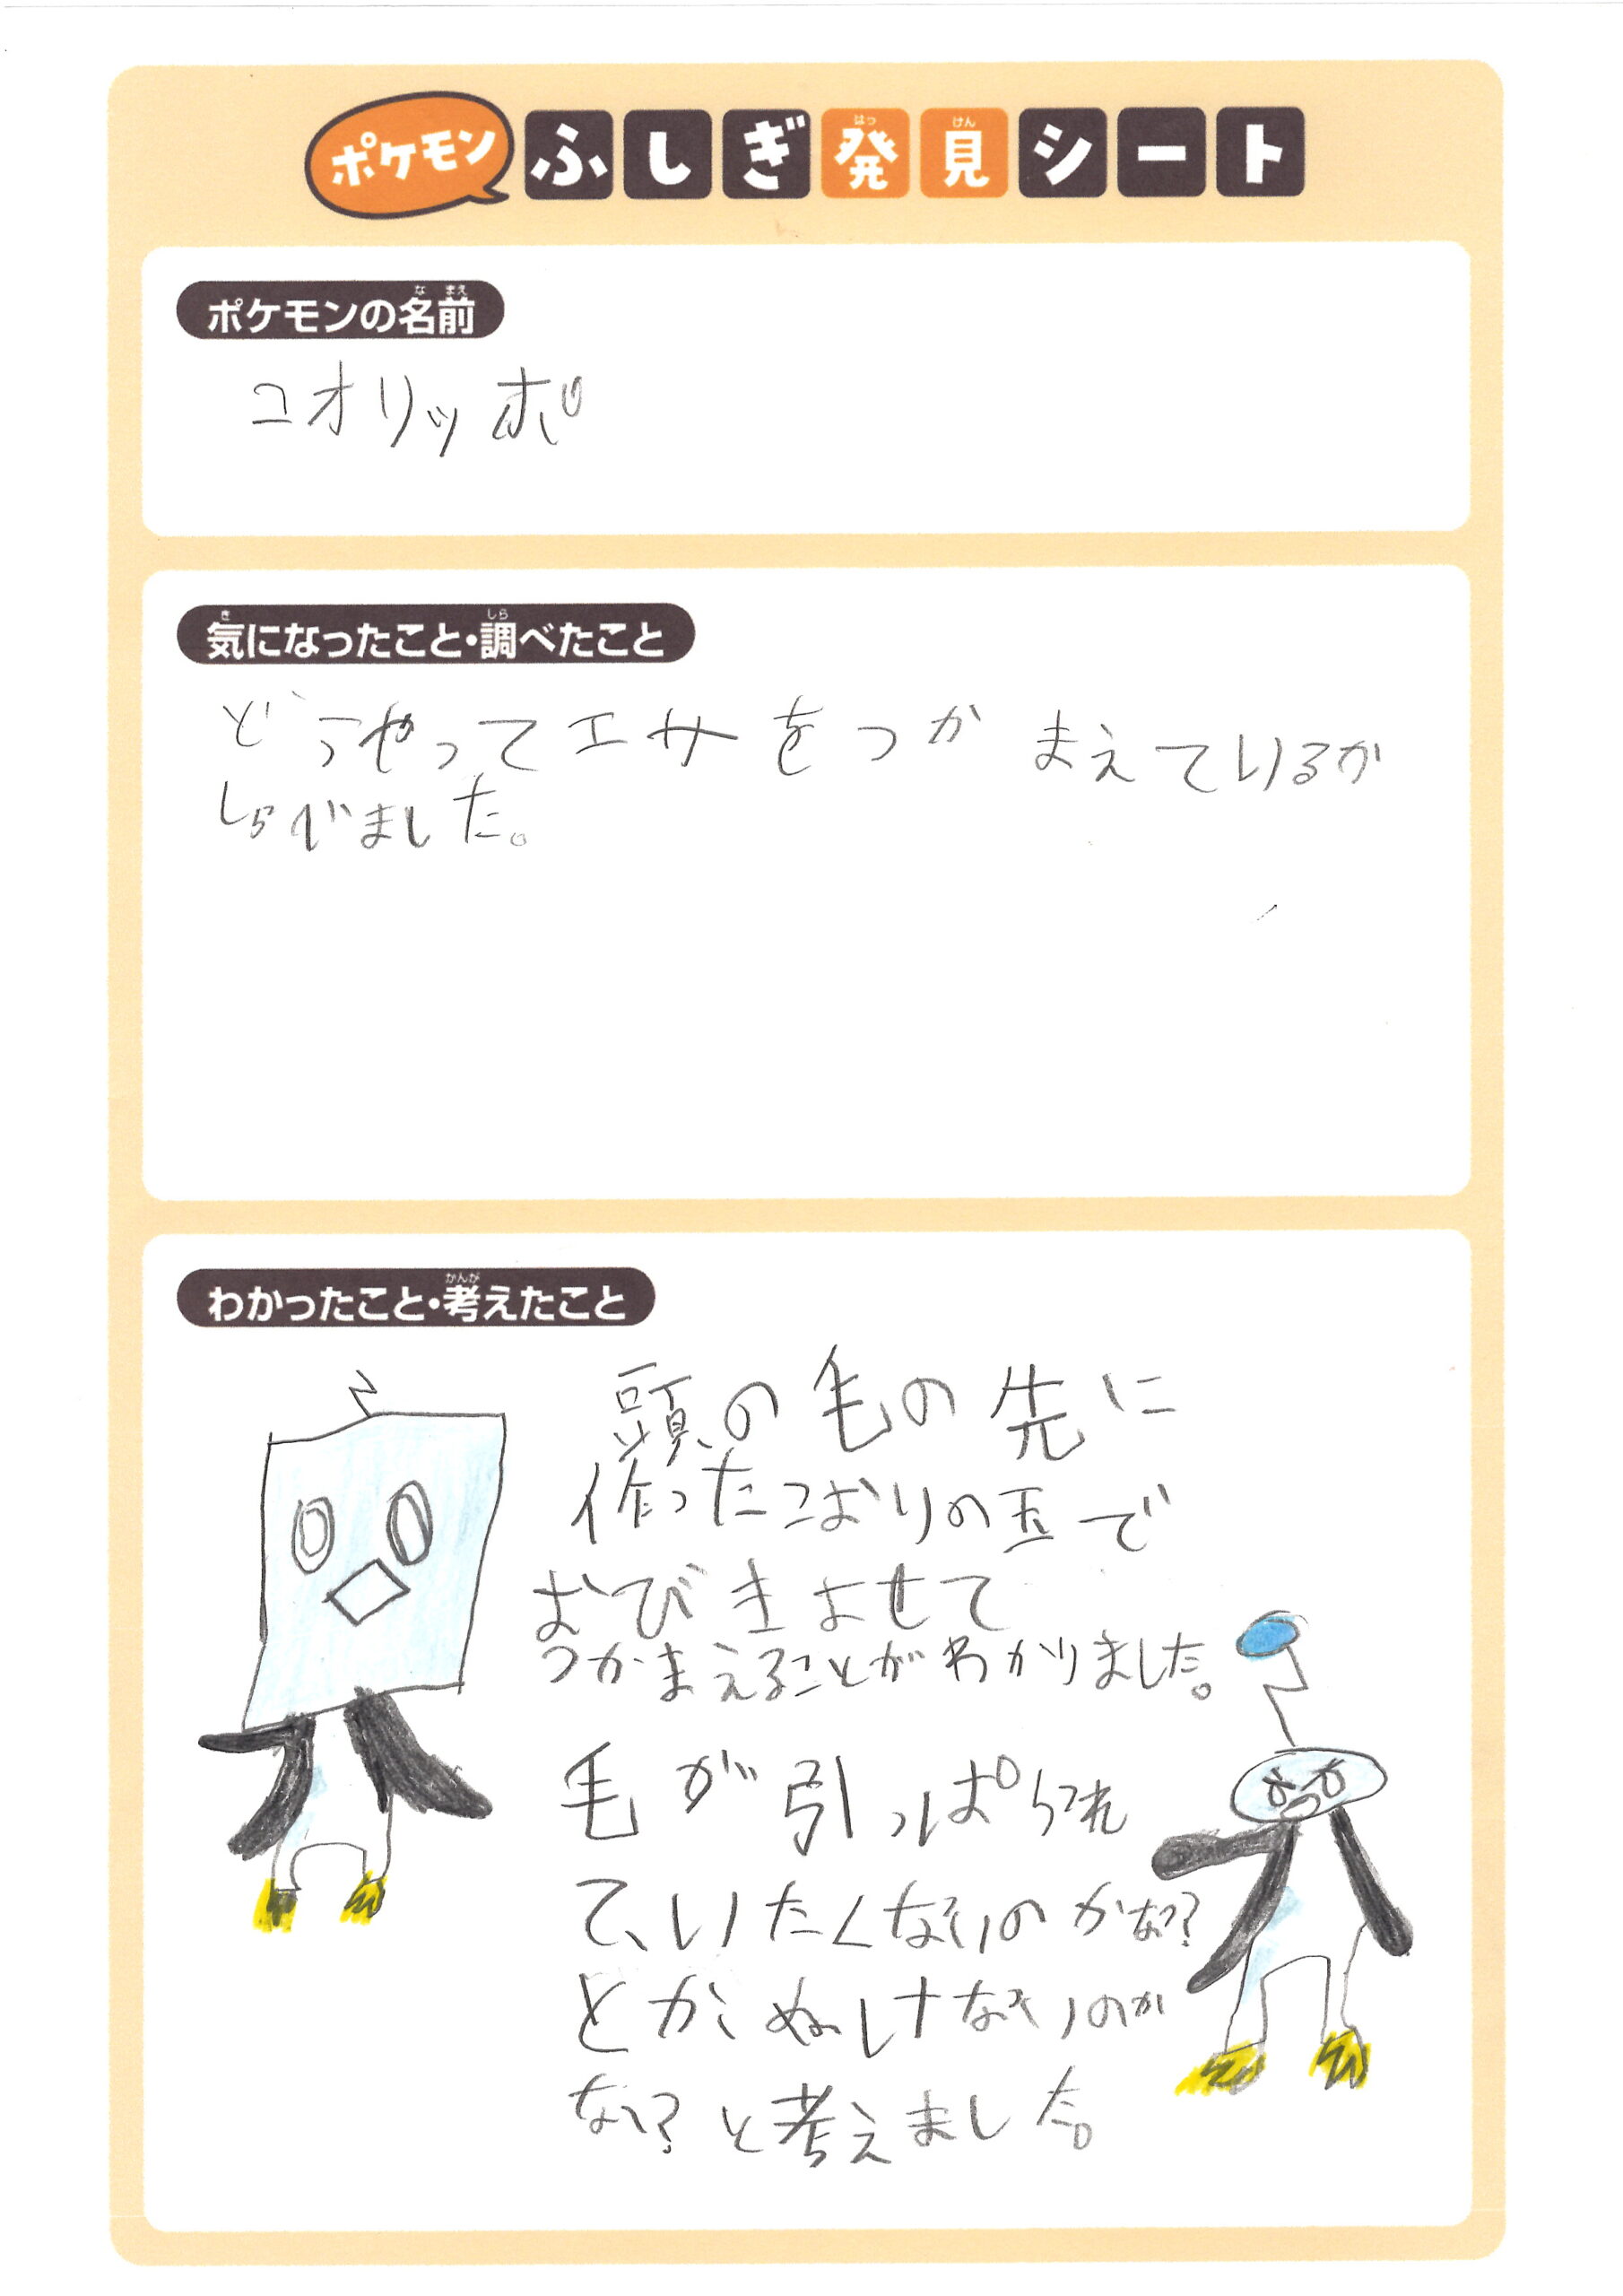 ポケモン ふしぎ発見シート
ポケモンの名前
コオリッポ
気になったこと・調べたこと
どうやってエサをつかまえているか
しらべました。
わかったこと・考えたこと
頭の毛の先に
作ったこおりの玉で
おびきよせて
つかまえることがわかりました。
毛が引っぱられ
て、いたくないのかな?
とか、ぬけないのか
な?と考えました。